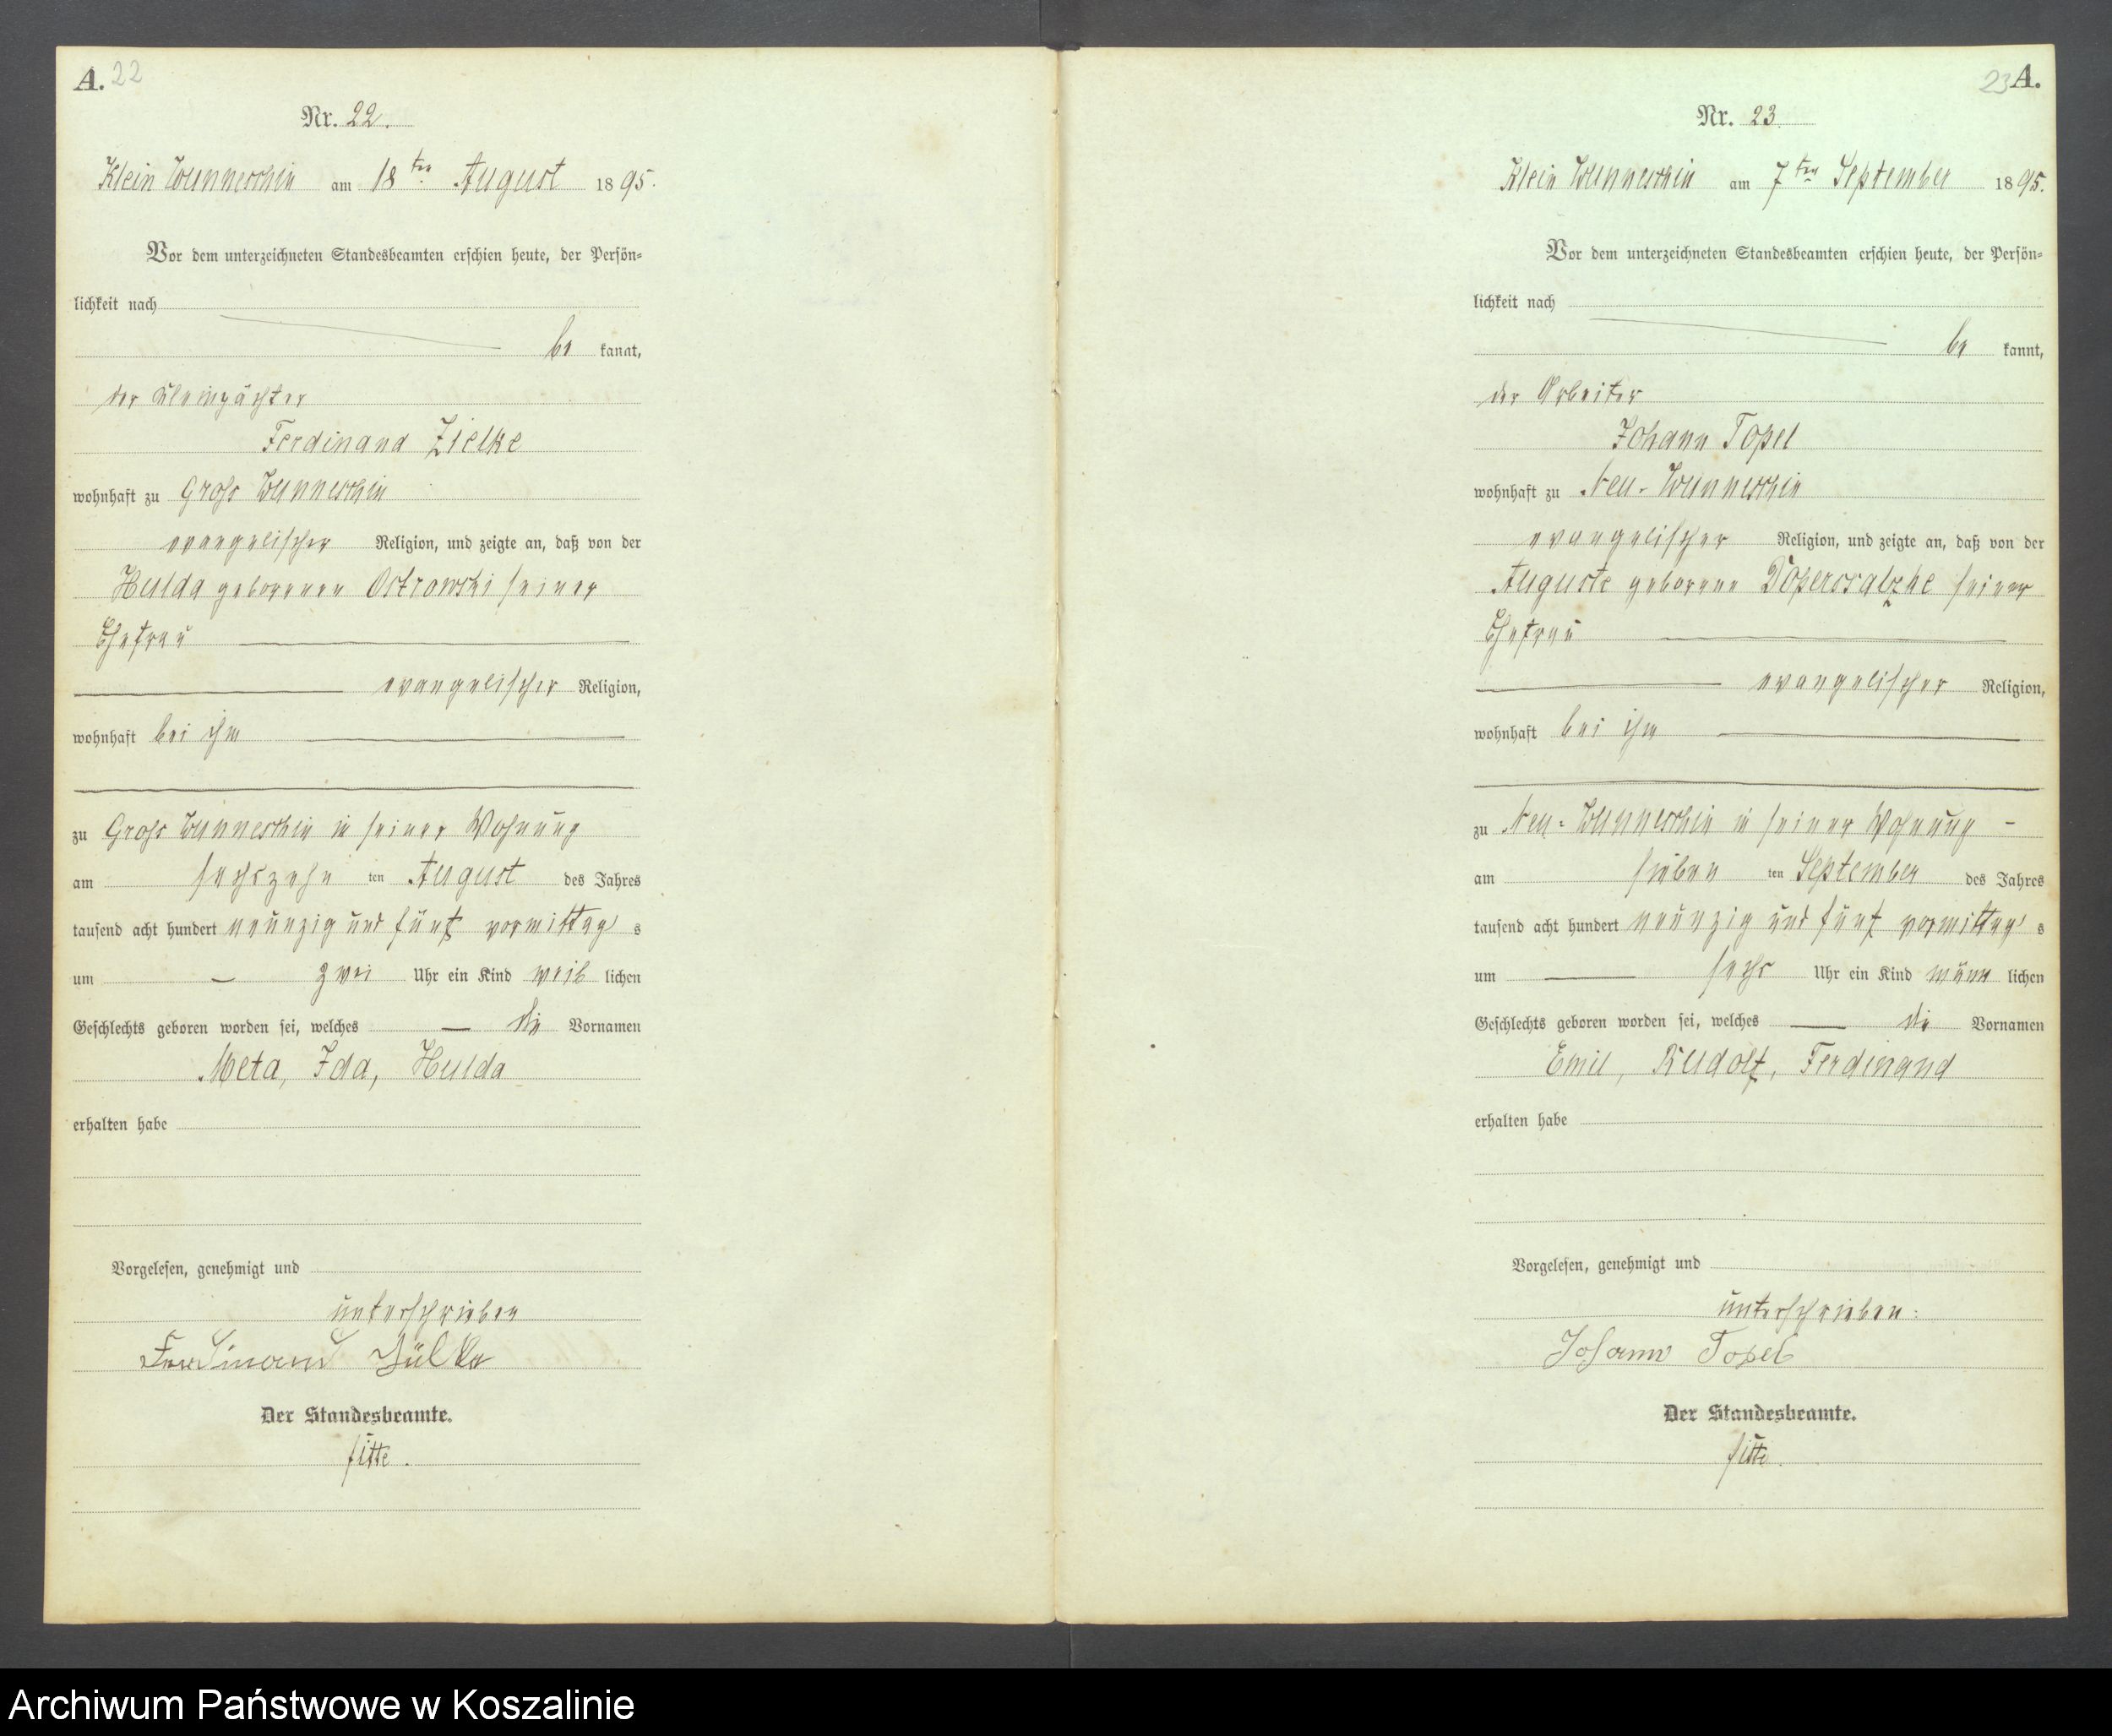 A. 22
Nr. 22.
Klein Wunneschin am 18ten August 1895.
Vor dem unterzeichneten Standesbeamten erschien heute, der Persön-
lichkeit nach
be kannt,
der Kleinpächter
Ferdinand Zielke
wohnhaft zu Gross Wunneschin
evangelischer Religion, und zeigte an, daß von der
Hulda geborenen Ostrowski seiner
Ehefrau
evangelischer Religion,
wohnhaft bei ihm
zu Gross Wunneschin in seiner Wohnung
am sechszehn ten August des Jahres
tausend acht hundert neunzig und fünf vormittag s
um zwei Uhr ein Kind weib lichen
Geschlechts geboren worden sei, welches die Vornamen
Meta, Ida, Hulda
erhalten habe
Vorgelesen, genehmigt und
unterschrieben
Ferdinand Zülke
Der Standesbeamte.
23 A.
Nr. 23.
Klein Wunneschin am 7ten September 1895.
Vor dem unterzeichneten Standesbeamten erschien heute, der Persön-
lichkeit nach
be kannt,
der Arbeiter
Johann Topel
wohnhaft zu Neu-Wunneschin
evangelischer Religion, und zeigte an, daß von der
Auguste geborene seiner
Ehefrau
evangelischer Religion,
wohnhaft bei ihm
zu Neu-Wunneschin in seiner Wohnung -
am sieben ten September des Jahres
tausend acht hundert neunzig und fünf vormittag s
um sechs Uhr ein Kind männ lichen
Geschlechts geboren worden sei, welches die Vornamen
Emil, Rudolf, Ferdinand
erhalten habe
Vorgelesen, genehmigt und
unterschrieben:
Johann Topel
Der Standesbeamte.
Archiwum Państwowe w Koszalinie